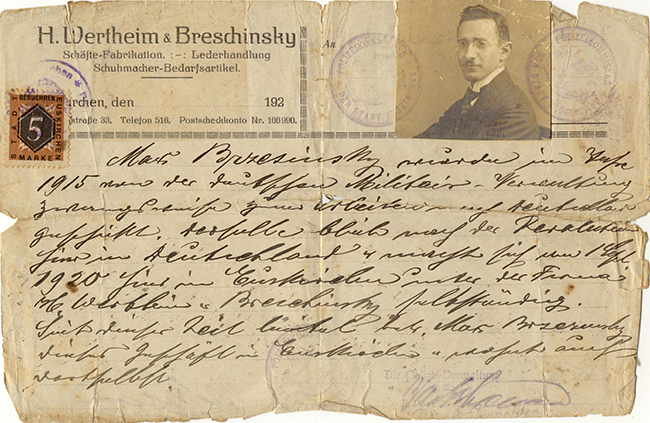 H. Wertheim & Breschinsky
Schäfte-Fabrikation. :–: Lederhandlung
Schuhmacher-Bedarfsartikel.
An
rchen, den 192
straße 33. Telefon 516. Postscheckkonto Nr. 108990.
STADT
GEBUEHREN
EUSKIRCHEN
MARKEN
5
Max Brzesinsky wurde im Jahre
1915 von der deutschen Militair-Verwaltung
zwangsweise zum arbeiten nach Deutschland
geschickt. Derselbe blieb nach der Revolution
hier in Deutschland u macht sich am 1
1920 hier in Euskirchen unter der Firma
H Wertheim u Breschinsky selbständig.
Seit dieser Zeit Max Brzezinsky
dieses Geschäft in Euskirchen u wohnt auch
dortselbst